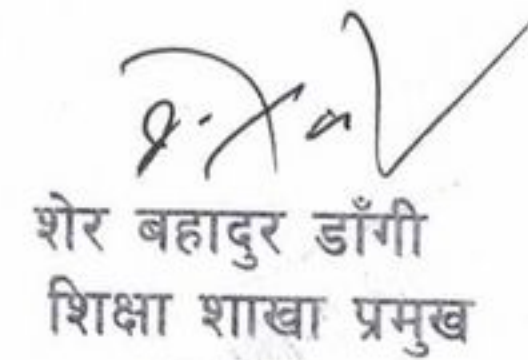 शेर बहादुर डाँगी
शिक्षा शाखा प्रमुख